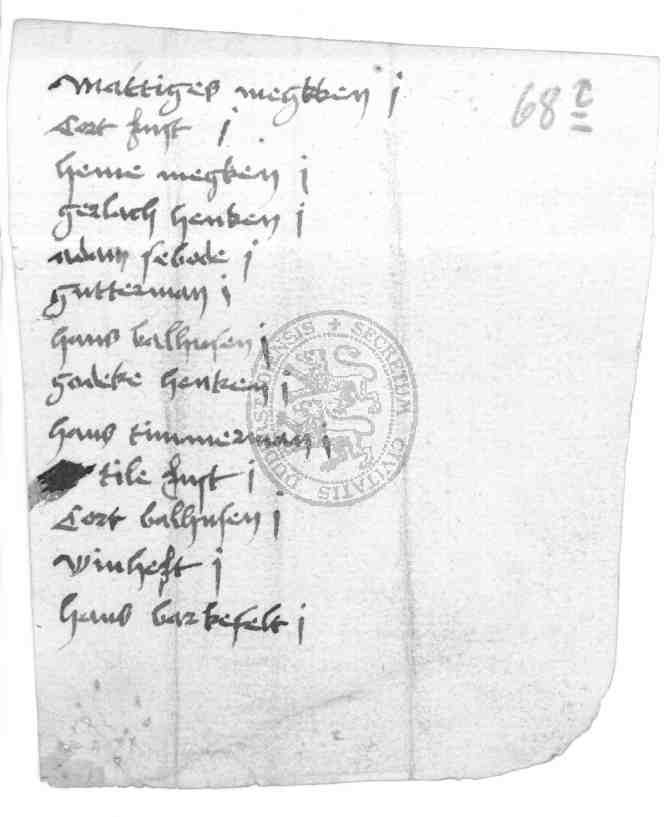 Mattiges megkken j
Cort fust j
heine megken j
gerlach henken j
adam sebode j
gutterman j
hans balhusen j
godeke henken j
hans timmerman j
tile fust j
Cort balhusen j
winheft j
hans barkefelt j
68
SECRETUM CIVITATIS DUDERSTADENSIS